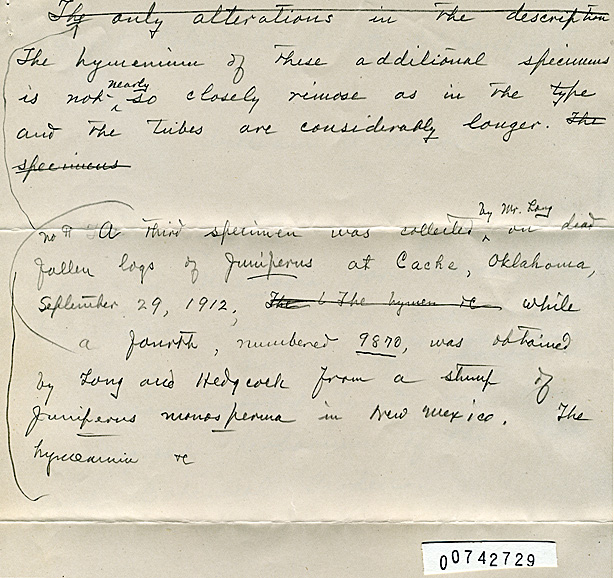 The only alterations in the description
The hymenium of these additional specimens
is not nearly so closely rimose as in the type
and the tubes are considerably longer. The
specimens
no ¶ A third specimen was collected by Mr. Long on dead
fallen logs of Juniperus at Cache, Oklahoma,
September 29, 1912, The hymen &c while
a fourth, numbered 9870, was obtained
by Long and Hedgcock from a stump of
Juniperus monosperma in New Mexico. The
&c
00742729